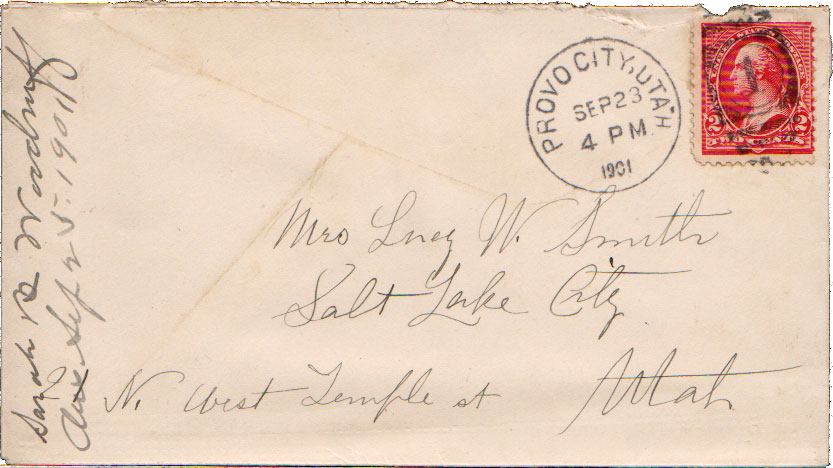 PROVO CITY, UTAH
SEP 23
4 PM
1901
UNITED STATES POSTAGE
2 2
Mrs Lucy W. Smith
Salt Lake City
N. West Temple st Utah
Sarah B Woodruff
Ans Sep 25. 1901